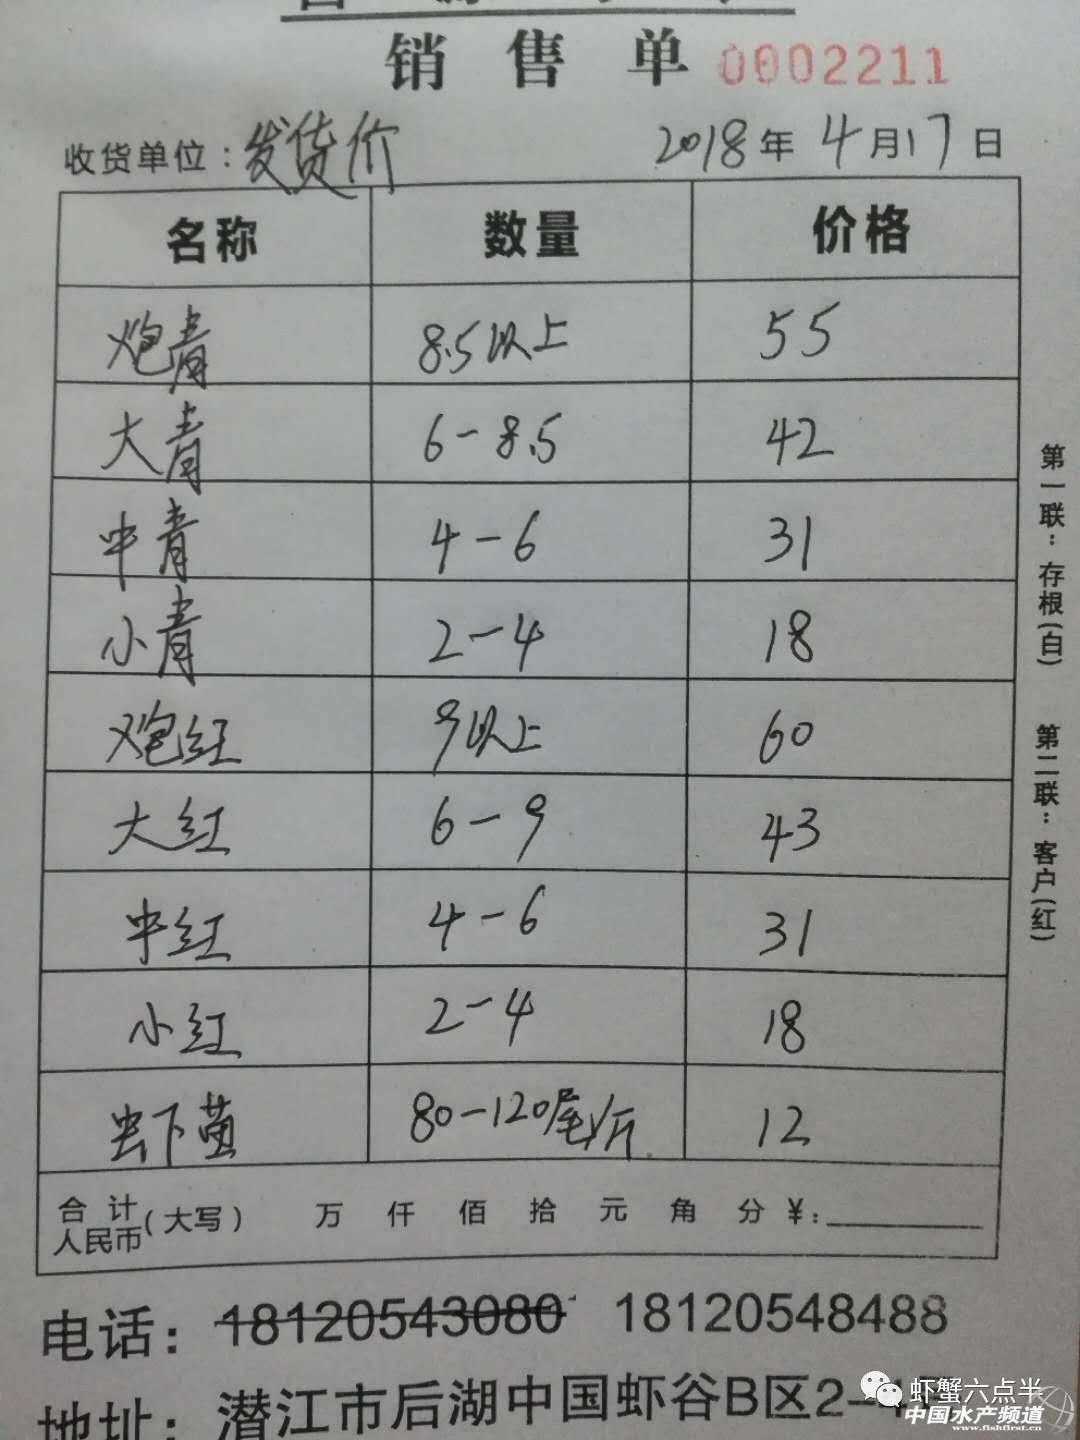 销售单 0002211
收货单位：发货价 2018年4月17日
名称 数量 价格
炮青 8.5以上 55
大青 6-8.5 42
中青 4-6 31
小青 2-4 18
炮红 9以上 60
大红 6-9 43
中红 4-6 31
小红 2-4 18
虾苗 80-120尾/斤 12
合计
人民币(大写) 万 仟 佰 拾 元 角 分 ¥:
第一联：存根(白) 第二联：客户(红)
电话：18120543080 18120548488
地址：潜江市后湖中国虾谷B区2-
虾蟹六点半
中国水产频道
www.fishfirst.cn